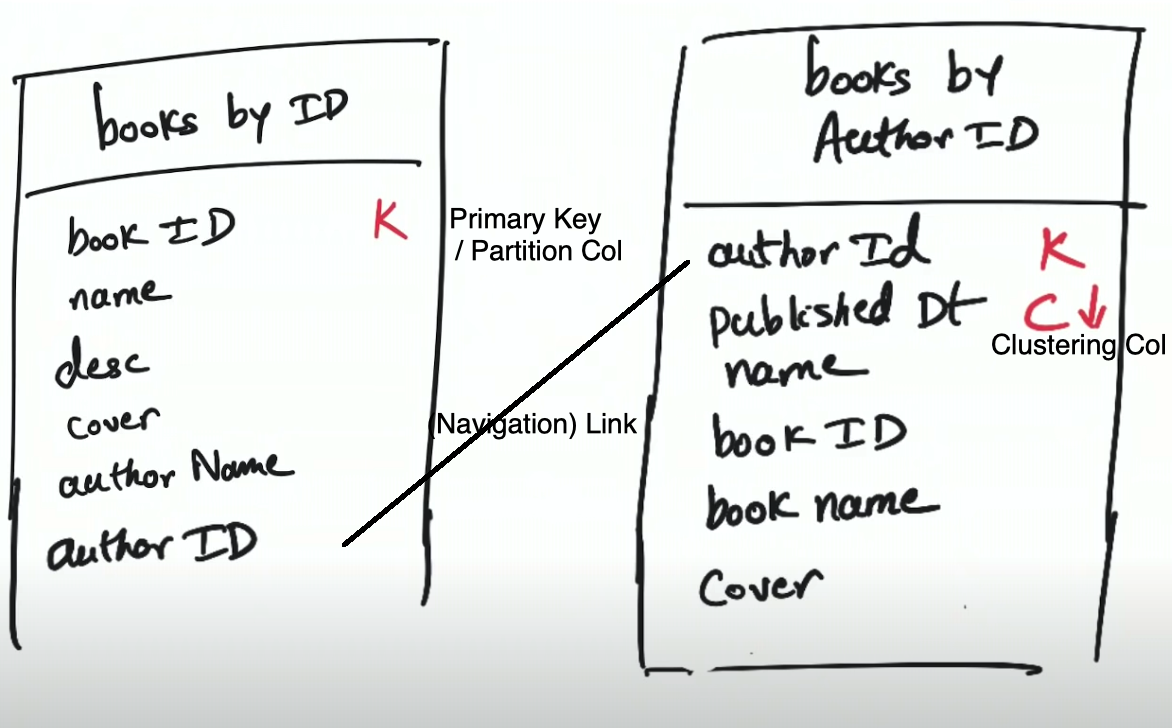 books by ID
book ID K
name
desc
cover
author Name
author ID
Primary Key
/ Partition Col
(Navigation) Link
books by
Author ID
author Id K
published Dt C↓
Clustering Col
name
book ID
book name
Cover